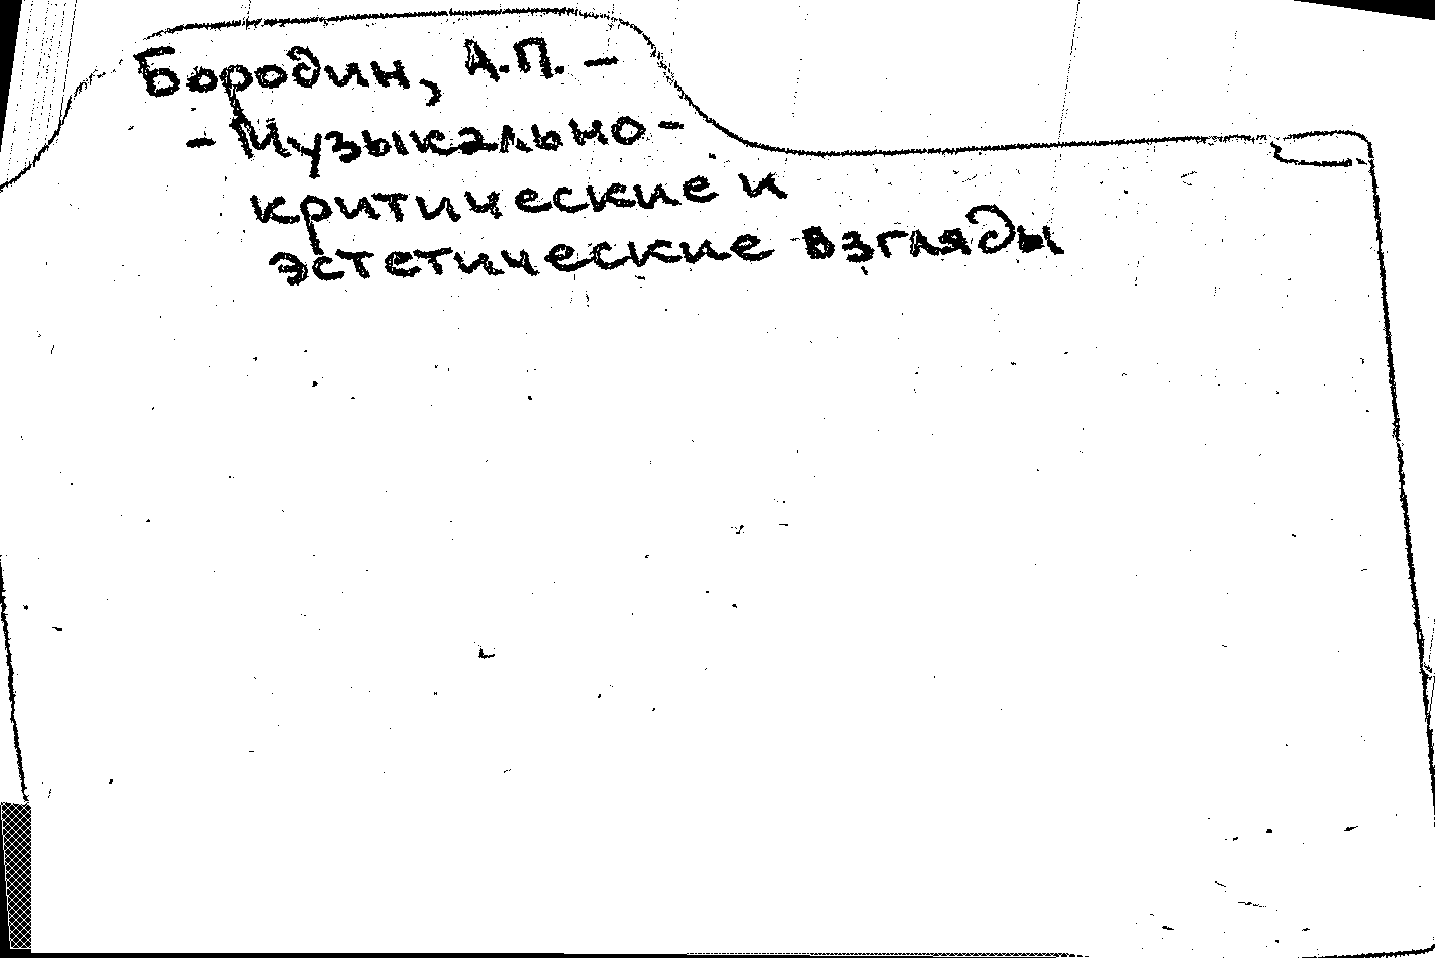 Бородин, А.П. –
– Музыкально-
критические и
эстетические взгляды